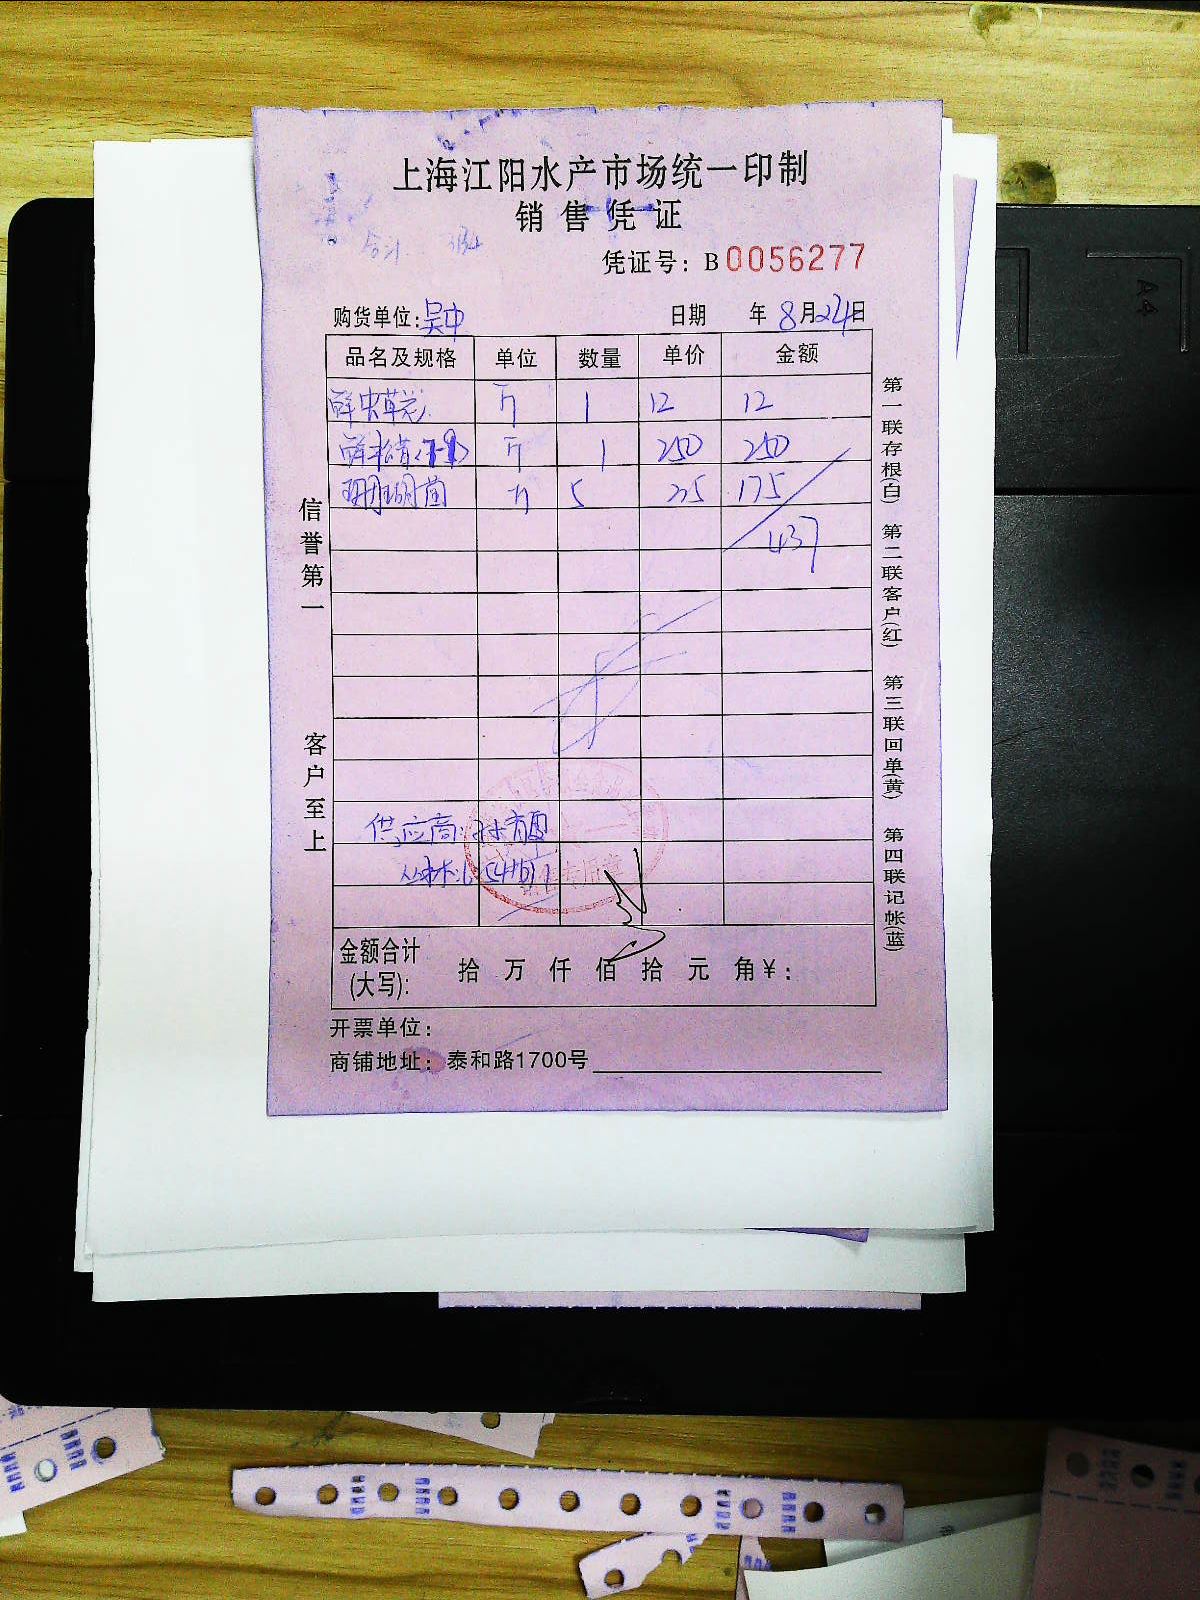 上海江阳水产市场统一印制
销售凭证
合计
凭证号：B0056277
购货单位：吴中 日期 年8月24日
品名及规格 单位 数量 单价 金额
鲜虫草花 斤 1 12 12
鲜松茸(7-9) 斤 1 250 250
珊瑚菌 斤 5 35 175
437
供应商：
金额合计(大写)： 拾 万 仟 佰 拾 元 角 ¥：
开票单位：
商铺地址：泰和路1700号
信誉第一
客户至上
第一联存根(白) 第二联客户(红) 第三联回单(黄) 第四联记帐(蓝)
A4